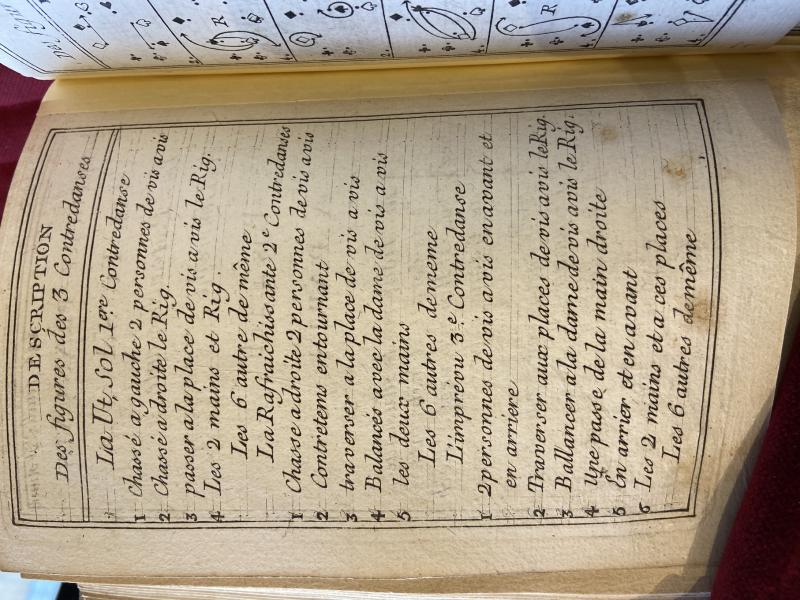 DESCRIPTION
Des figures des 3 Contredanses
La Ut, Sol 1ere Contredanse
1 Chassé a gauche 2 personnes de vis avis
2 Chassé a droite le Rig.
3 passer a la place de vis a vis le Rig.
4 Les 2 mains et Rig.
Les 6 autre de même
La Rafraichissante 2e Contredanses
1 Chasse a droite 2 personnes de vis avis
2 Contretems entournant
3 traverser a la place de vis a vis
4 Balancés avec la dame de vis a vis
5 les deux mains
Les 6 autres de meme
L'imprévu 3.e Contredanse
1 2 personnes de vis a vis en avant et
en arriere
2 Traverser aux places de vis avis le Rig.
3 Ballancer a la dame de vis avis le Rig.
4 Une passe de la main droite
5 En arrier et en avant
6 Les 2 mains et a ces places
Les 6 autres de même
R
R
2.